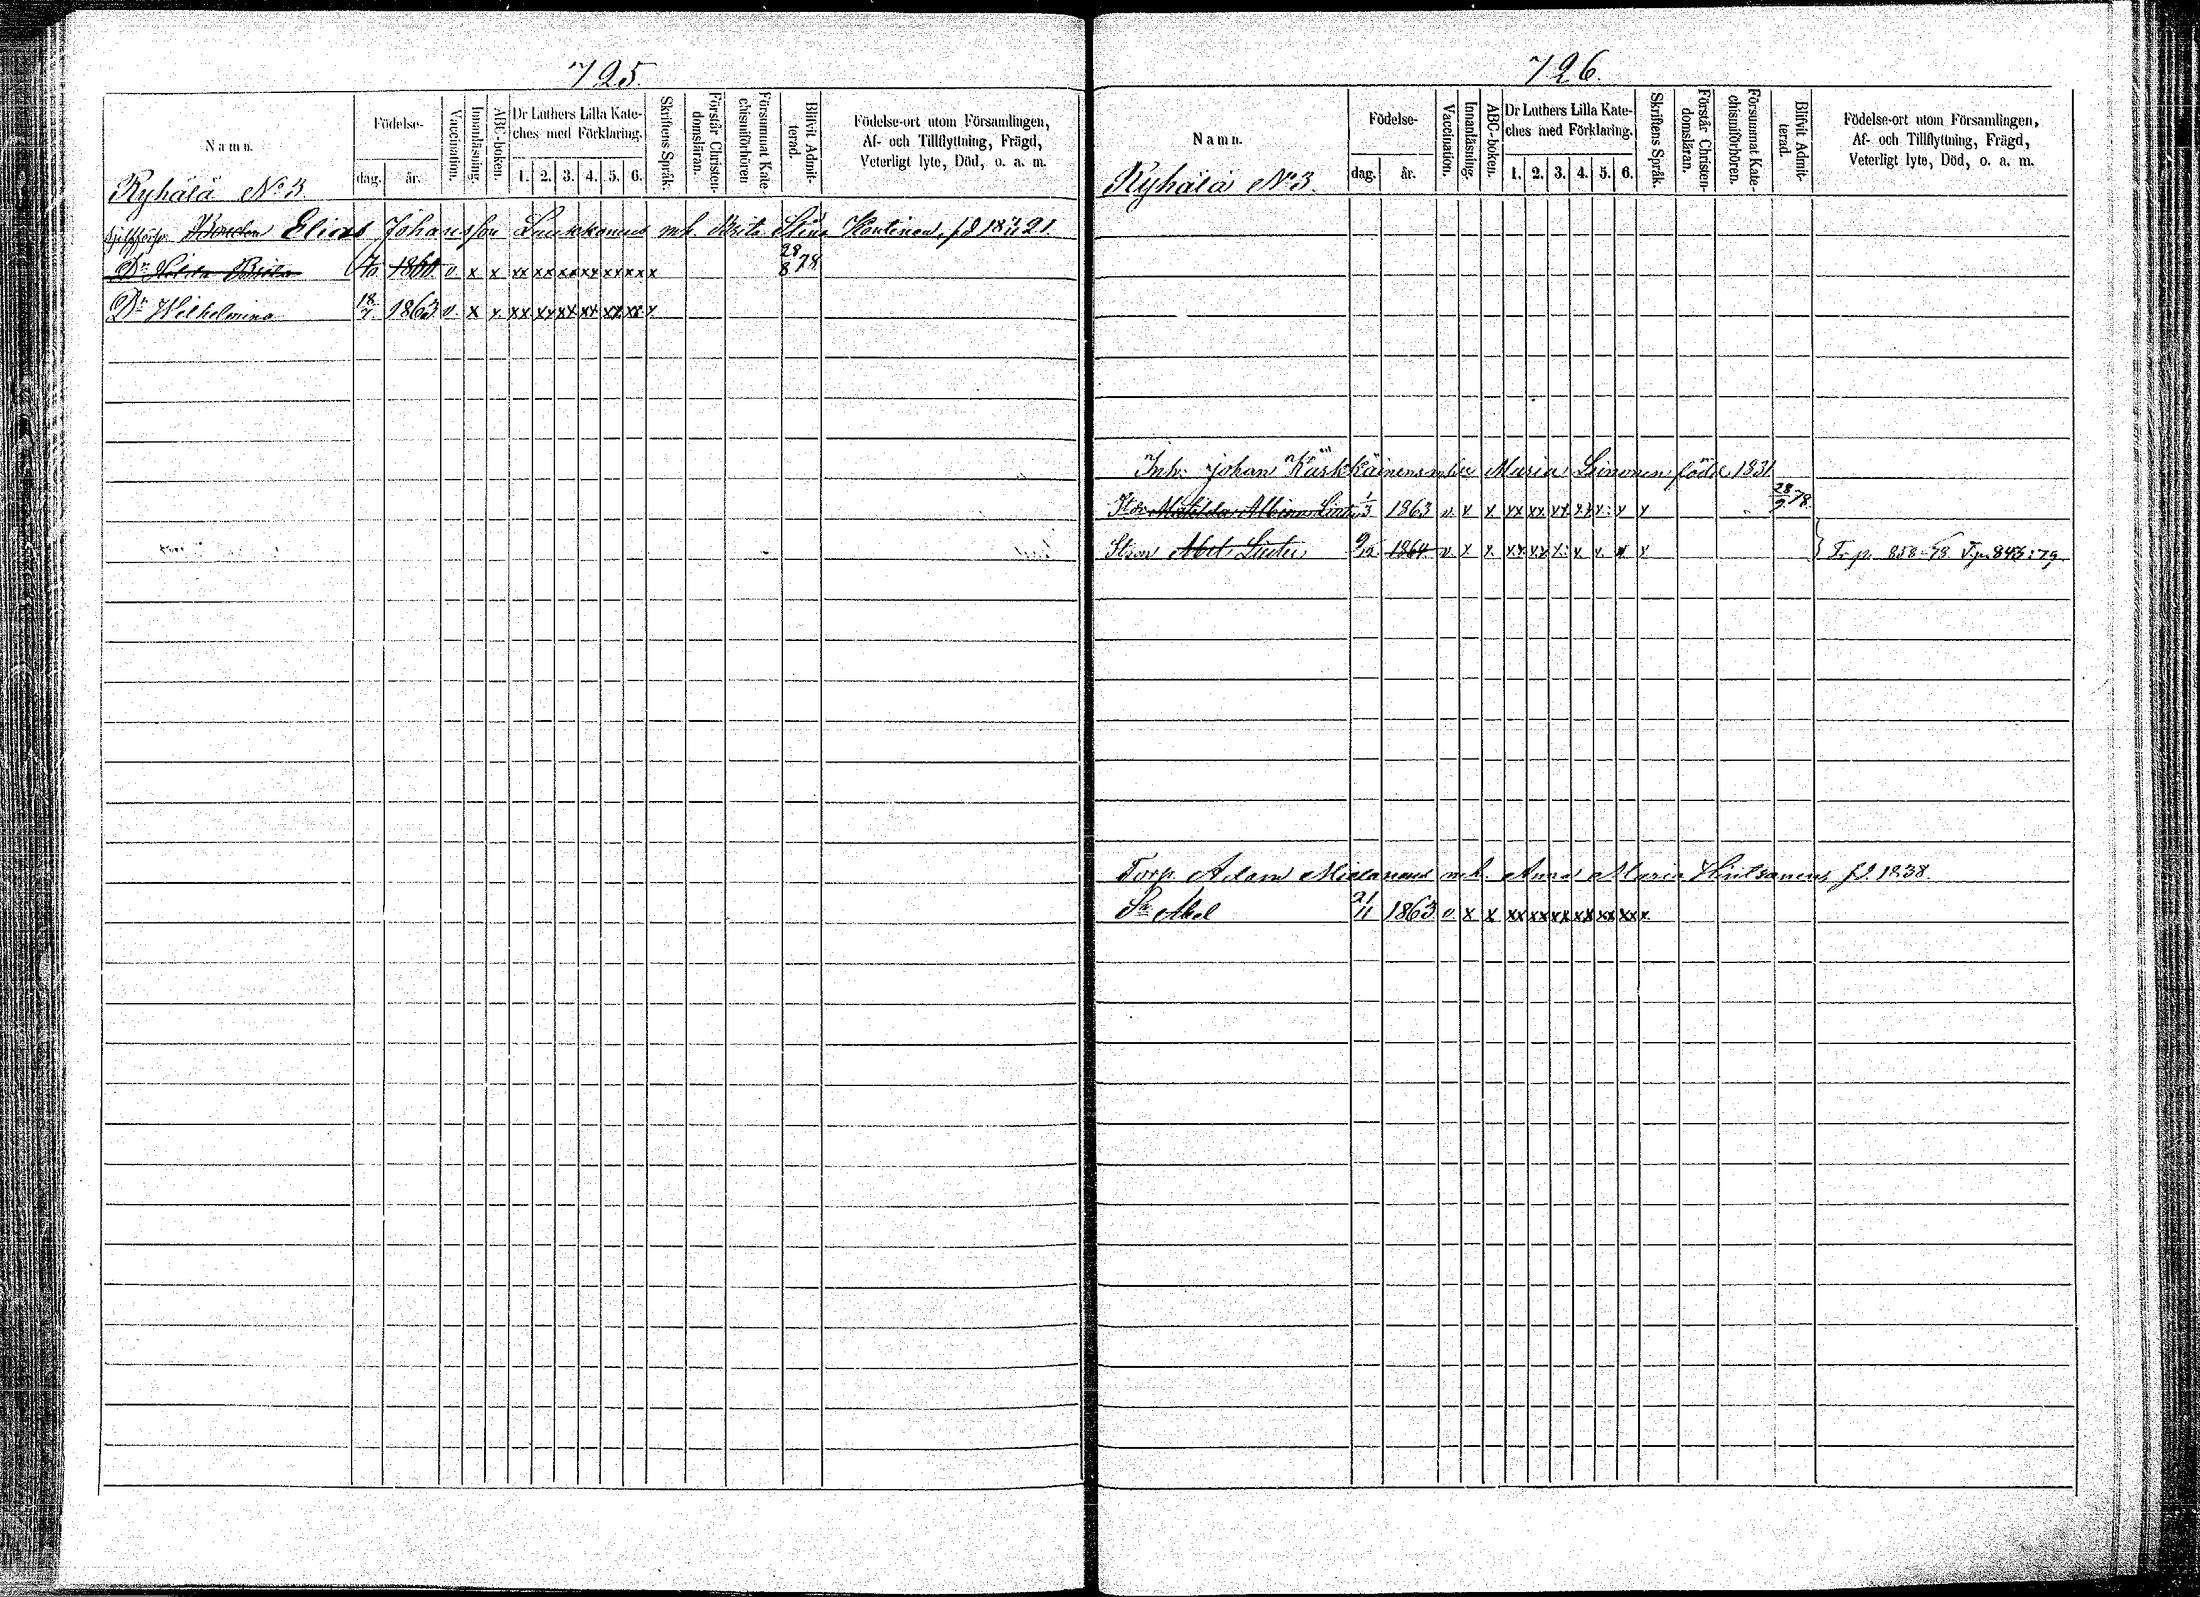 725.
Namn.
Födelse-
dag.
år.
Vaccination.
Innanläsning.
ABC-boken.
Dr Luthers Lilla Kate-
ches med Förklaring.
1. 2. 3. 4. 5. 6.
Skriftens Språk.
Förstår Christen-
domsläran.
Försummat Kate-
chismiförhören
Blifvit Admit-
terad.
Födelse-ort utom Församlingen,
Af- och Tillflyttning, Frägd,
Veterligt lyte, Död, o. a. m.
Ryhälä No 3
Elias Johansson Laukkanens m.h. Brita Stina Kontinen, fd 18 21
Dr 1860 v. x x xx xx xx xx xx xx x 28/8 78
Dr Wilhelmina 18/7 1863 v. x x xx xx xx xx xx xx x
726.
Namn.
Födelse-
dag.
år.
Vaccination.
Innanläsning.
ABC-boken.
Dr Luthers Lilla Kate-
ches med Förklaring.
1. 2. 3. 4. 5. 6.
Skriftens Språk.
Förstår Christen-
domsläran.
Försummat Kate-
chismiförhören.
Blifvit Admit-
terad.
Födelse-ort utom Församlingen,
Af- och Tillflyttning, Frägd,
Veterligt lyte, Död, o. a. m.
Ryhälä No 3.
Inh. Johan Kärkkäinens Maria Leinonen född 1831
Matilda Albina 1/3 1863 v x x xx xx xx xx x. x x 28/9 78.
Abel 9/12 1864 v. x x xx xx x. x. x. x x Fr p. 858-78. T.p. 843:79
Torp. Adam Mielanens m.h. Anna Maria Hintsanens fd. 1838.
Sn Abel 21/11 1863 v x x xx xx xx xx xx xx x